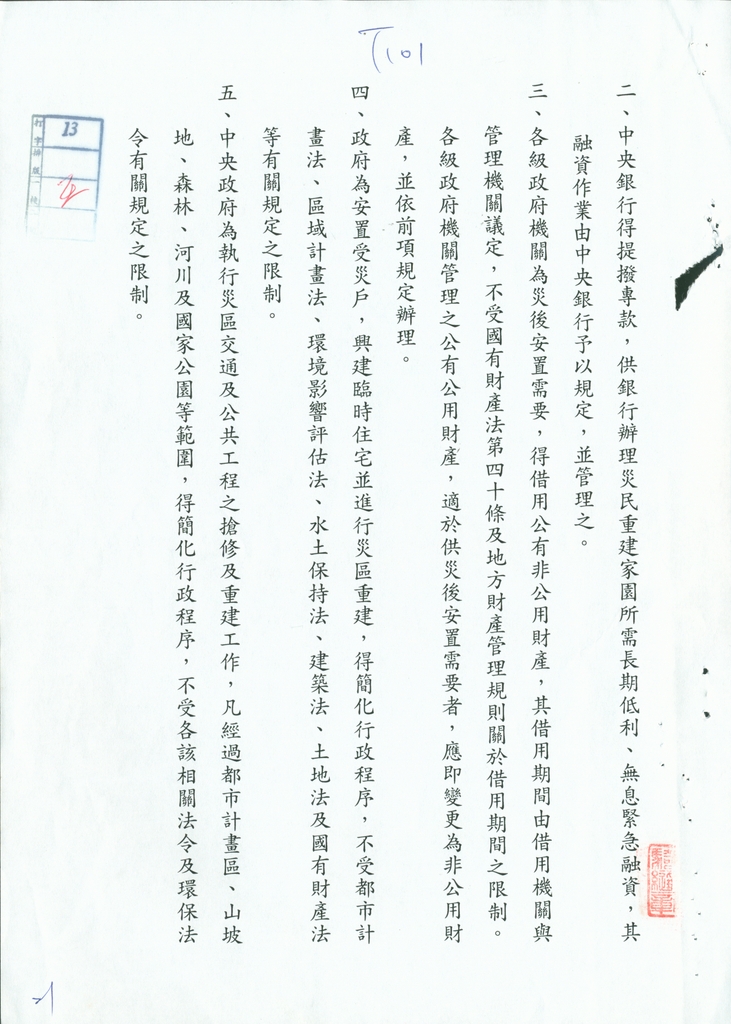 二、中央銀行得提撥專款，供銀行辦理災民重建家園所需長期低利、無息緊急融資，其
融資作業由中央銀行予以規定，並管理之。
三、各級政府機關為災後安置需要，得借用公有非公用財產，其借用期間由借用機關與
管理機關議定，不受國有財產法第四十條及地方財產管理規則關於借用期間之限制。
各級政府機關管理之公有公用財產，適於供災後安置需要者，應即變更為非公用財
產，並依前項規定辦理。
四、政府為安置受災戶，興建臨時住宅並進行災區重建，得簡化行政程序，不受都市計
畫法、區域計畫法、環境影響評估法、水土保持法、建築法、土地法及國有財產法
等有關規定之限制。
五、中央政府為執行災區交通及公共工程之搶修及重建工作，凡經過都市計畫區、山坡
地、森林、河川及國家公園等範圍，得簡化行政程序，不受各該相關法令及環保法
令有關規定之限制。
13